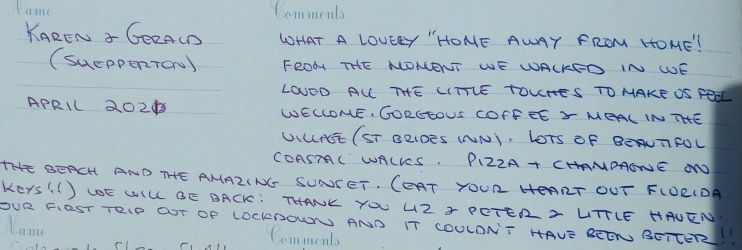 Name
Comments
KAREN & GERALD
(SHEPPERTON)
APRIL 2021
WHAT A LOVELY "HOME AWAY FROM HOME"!
FROM THE MOMENT WE WALKED IN WE
LOVED ALL THE LITTLE TOUCHES TO MAKE US FEEL
WELCOME. GORGEOUS COFFEE & MEAL IN THE
VILLAGE (ST BRIDES INN). LOTS OF BEAUTIFUL
COASTAL WALKS. PIZZA + CHAMPAGNE ON
THE BEACH AND THE AMAZING SUNSET. (EAT YOUR HEART OUT FLORIDA
KEYS!!) WE WILL BE BACK! THANK YOU LIZ & PETER & LITTLE HAVEN.
OUR FIRST TRIP OUT OF LOCKDOWN AND IT COULDN'T HAVE BEEN BETTER!!
Name
Comments